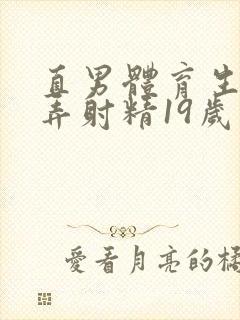 直男體育生
弄射精19歲
愛看月亮的橘